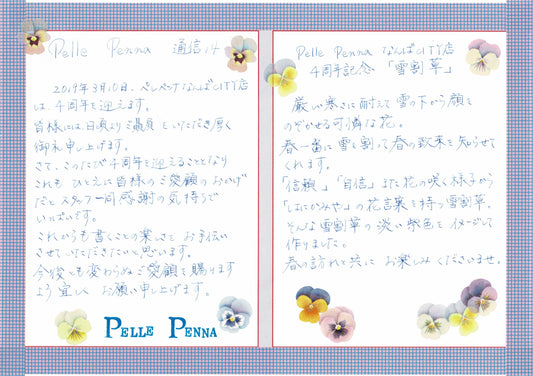 Pelle Penna 通信14
2019年3月10日、ペレペンナなんばCITY店
は、4周年を迎えます。
皆様には日頃よりご贔屓をいただき厚く
御礼申し上げます。
さて、このたび4周年を迎えることとなり
これもひとえに皆様のご愛顧のおかげ
だとスタッフ一同感謝の気持ちで
いっぱいです。
これからも書くことの楽しさをお手伝い
させていただきたいと思います。
今後とも変わらぬご愛顧を賜ります
よう宜しくお願い申し上げます。
PELLE PENNA
Pelle Penna なんばCITY店
4周年記念 「雪割草」
厳しい寒さに耐えて雪の下から顔を
のぞかせる可憐な花。
春一番に雪を割って春の到来を知らせて
くれます。
「信頼」「自信」また花の咲く様子から
「はにかみや」の花言葉を持つ雪割草。
そんな雪割草の淡い紫色をイメージして
作りました。
春の訪れと共にお楽しみくださいませ。